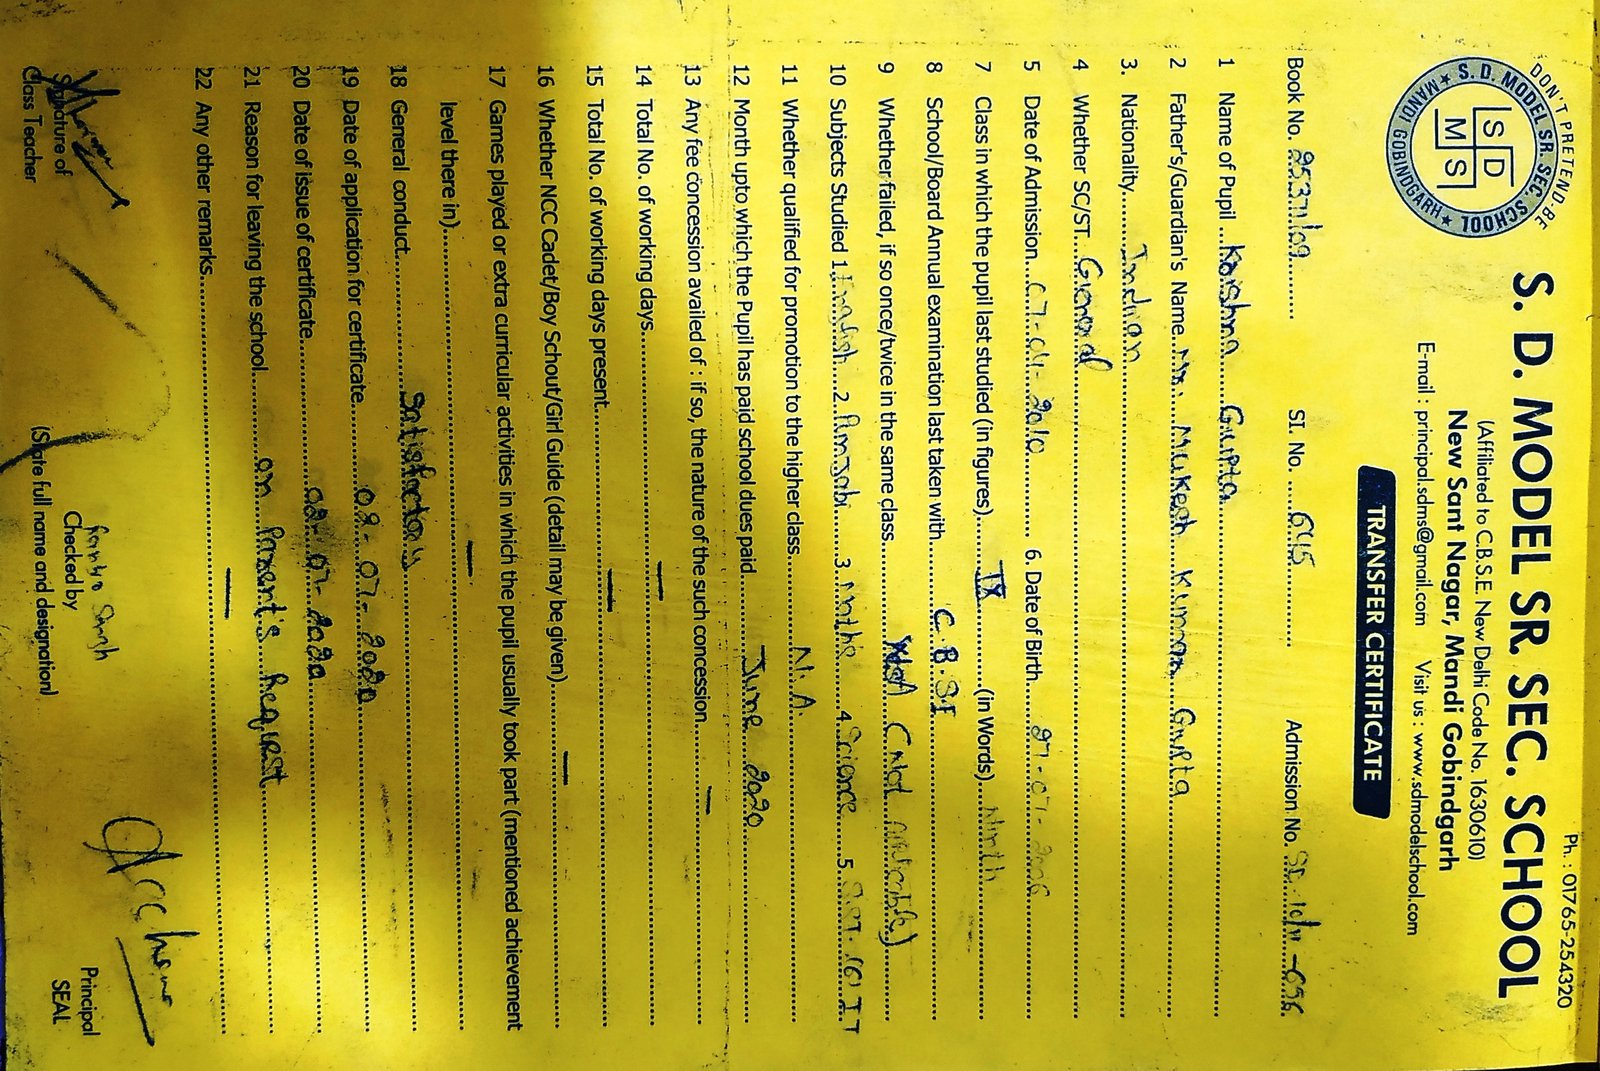 Ph. : 01765-254320
DON'T PRETEND-BE
S. D. MODEL SR. SEC. SCHOOL
★ MANDI GOBINDGARH ★
S D
M S
S. D. MODEL SR. SEC. SCHOOL
(Affiliated to C.B.S.E. New Delhi Code No. 1630610)
New Sant Nagar, Mandi Gobindgarh
E-mail : principal.sdms@gmail.com Visit us : www.sdmodelschool.com
TRANSFER CERTIFICATE
Book No. SI. No. 645 Admission No.
1 Name of Pupil Krishna Gupta
2 Father's/Guardian's Name Mr. Mukesh Kumar Gupta
3. Nationality Indian
4 Whether SC/ST General
5 Date of Admission 07-04-2010 6. Date of Birth 27-07-2006
7 Class in which the pupil last studied (in figures) IX (in Words) Ninth
8 School/Board Annual examination last taken with C.B.S.E
9 Whether failed, if so once/twice in the same class (Not
10 Subjects Studied 1 English 2 Punjabi 3 Maths 4 Science 5
11 Whether qualified for promotion to the higher class N.A.
12 Month upto which the Pupil has paid school dues paid June 2020
13 Any fee concession availed of : if so, the nature of the such concession -
14 Total No. of working days -
15 Total No. of working days present -
16 Whether NCC Cadet/Boy Schout/Girl Guide (detail may be given) -
17 Games played or extra curricular activities in which the pupil usually took part (mentioned achievement
level there in) -
18 General conduct Satisfactory
19 Date of application for certificate 02-07-2020
20 Date of issue of certificate 02-07-2020
21 Reason for leaving the school on Parent's Request
22 Any other remarks -
Signature of
Class Teacher
Checked by
(State full name and designation)
Principal
SEAL